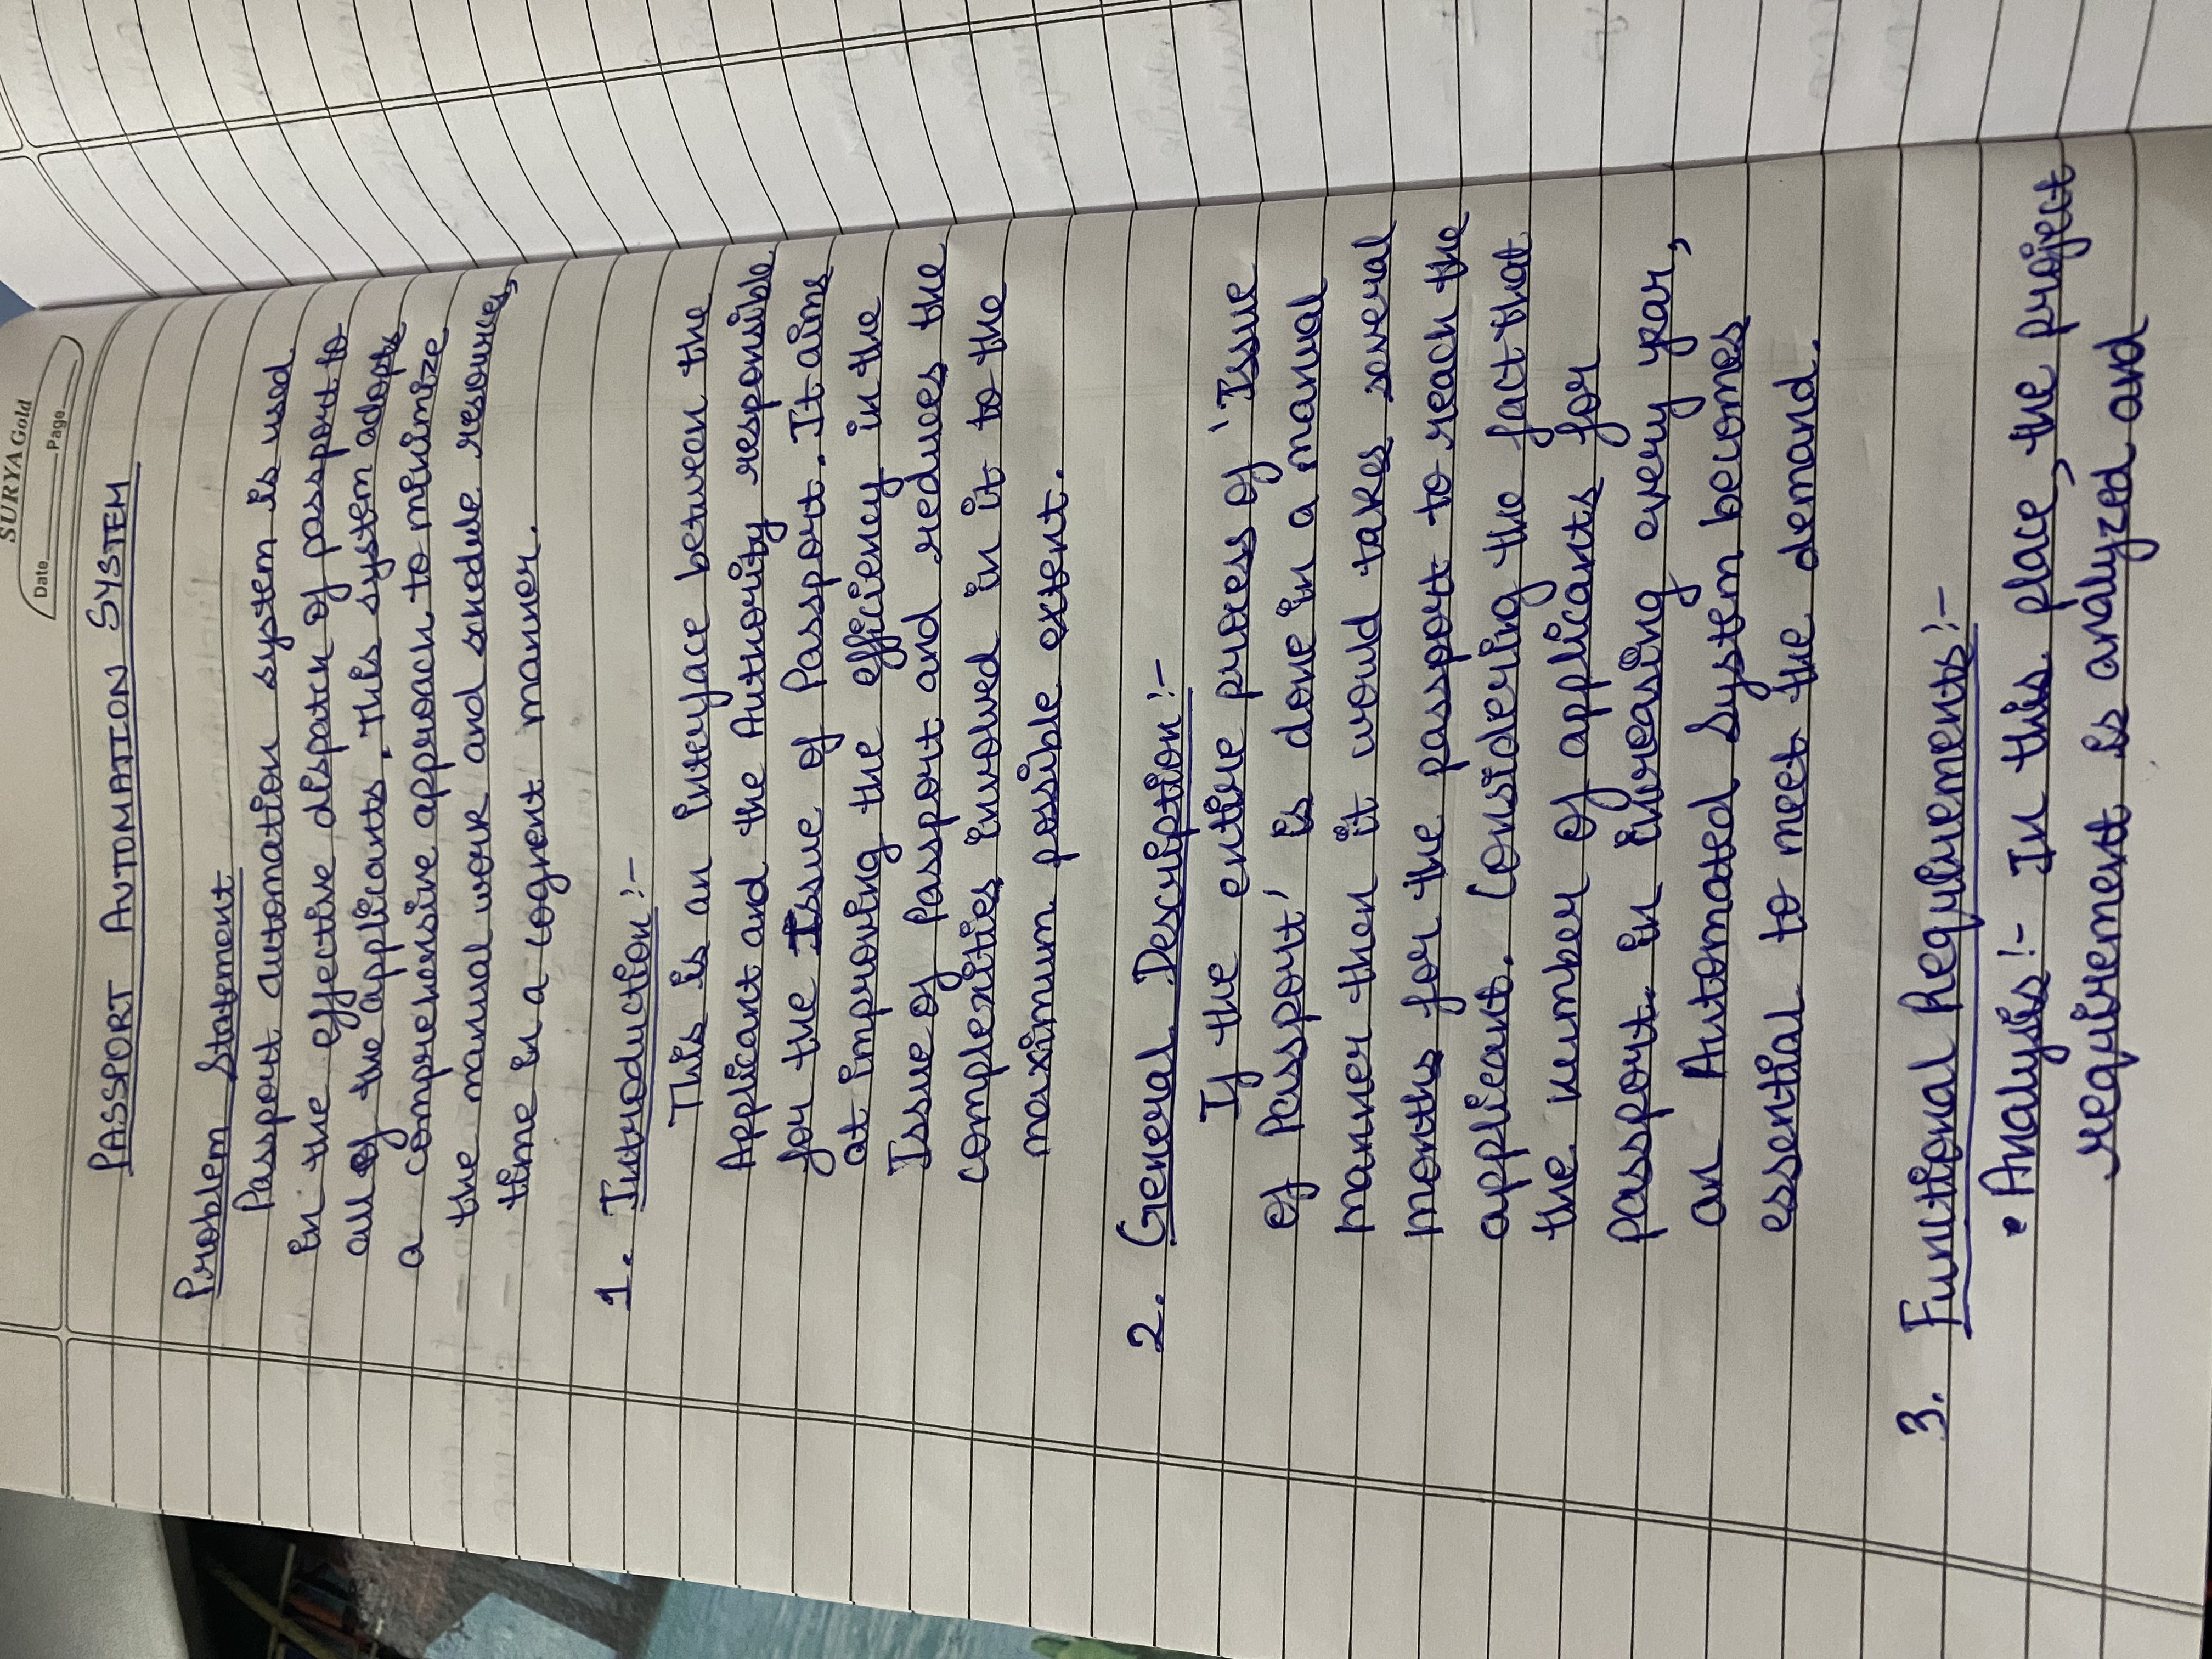 SURYA Gold
Date Page
PASSPORT AUTOMATION SYSTEM
Problem Statement
Passport automation system is used
in the effective dispatch of passport to
all of the applicants. This system adopts
a comprehensive approach to minimize
the manual work and schedule resources,
time in a cognent manner.
1. Introduction :-
This is an interface between the
Applicant and the Authority responsible
for the Issue of Passport. It aims
at improving the efficiency in the
Issue of Passport and reduces the
complexities involved in it to the
maximum possible extent.
2. General Description :-
If the entire process of 'Issue
of Passport' is done in a manual
manner then it would takes several
months for the passport to reach the
applicant. Considering the fact that
the number of applicants for
passport in increasing every year,
an Automated System becomes
essential to meet the demand.
3. Functional Requirements :-
• Analysis :- In this place, the project
requirement is analyzed and